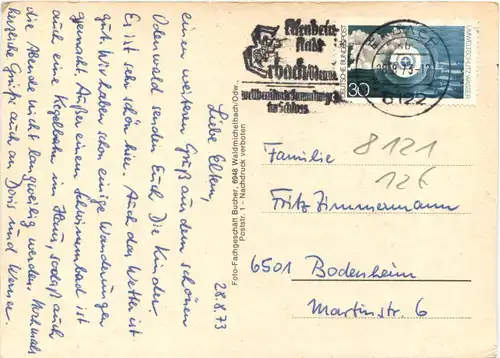 28.8.73
Liebe Eltern,
einen weiteren Gruß aus dem schönen
Odenwald senden Euch Die Kinder.
Es ist sehr schön hier. Auch das Wetter ist
gut. Wir haben schon einige Wanderungen
gemacht. Außer einem Schwimmbad ist
auch eine Kegelbahn im Haus, sodaß auch
die Abende nicht langweilig werden. Nochmals
herzliche Grüße auch an Doris und Werner.
Foto-Fachgeschäft Bucher, 6948 Waldmichelbach/Odw.
Poststr. 1 - Nachdruck verboten
Elfenbein-
stadt
Erbach/Odenw.
im Schloss
DEUTSCHE BUNDESPOST
UMWELTSCHUTZ WASSER
30
6122
8121
126
Familie
Fritz Zimmermann
6501 Bodenheim
Martinstr. 6